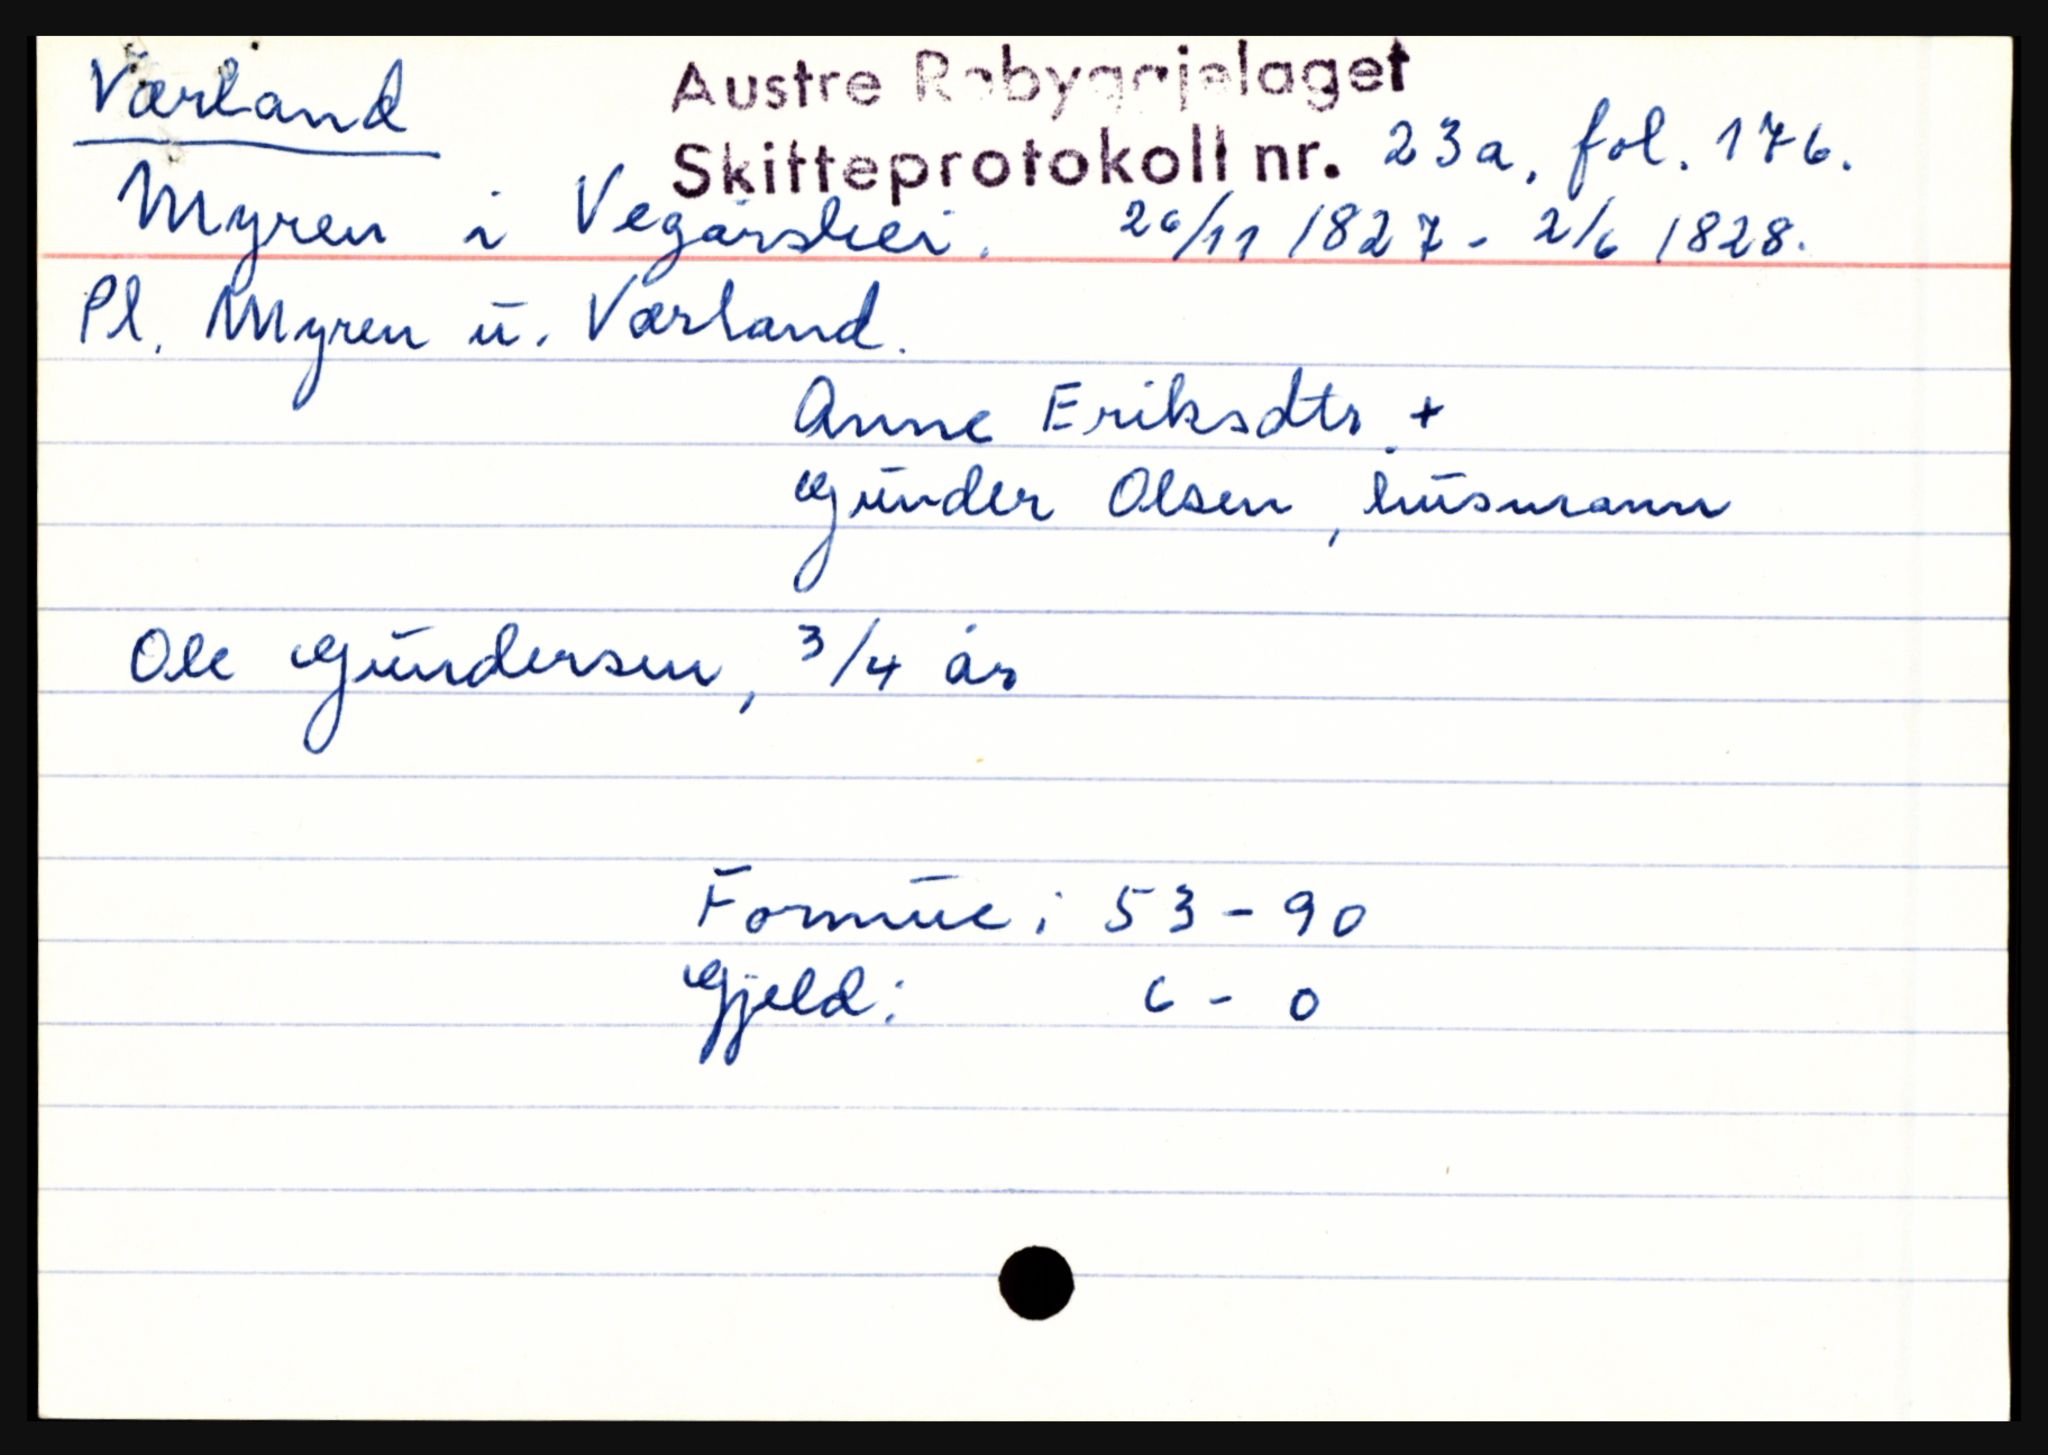 Værland
Austre Rabyggjelaget
Skifteprotokoll nr. 23a, fol. 176.
Myren i Vegårshei. 26/11 1827 - 2/6 1828.
Pl. Myren u. Værland.
Anne Eriksdtr +
Gunder Olsen, husmann
Ole Gundersen, 3/4 år
Formue: 53 - 90
Gjeld: 6 - 0